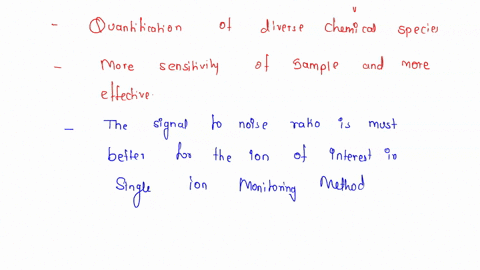 - Quantification of diverse chemical species
- More sensitivity of sample and more
effective.
- The signal to noise rako is must
better for the ion of interest in
Single ion Monitoring Method